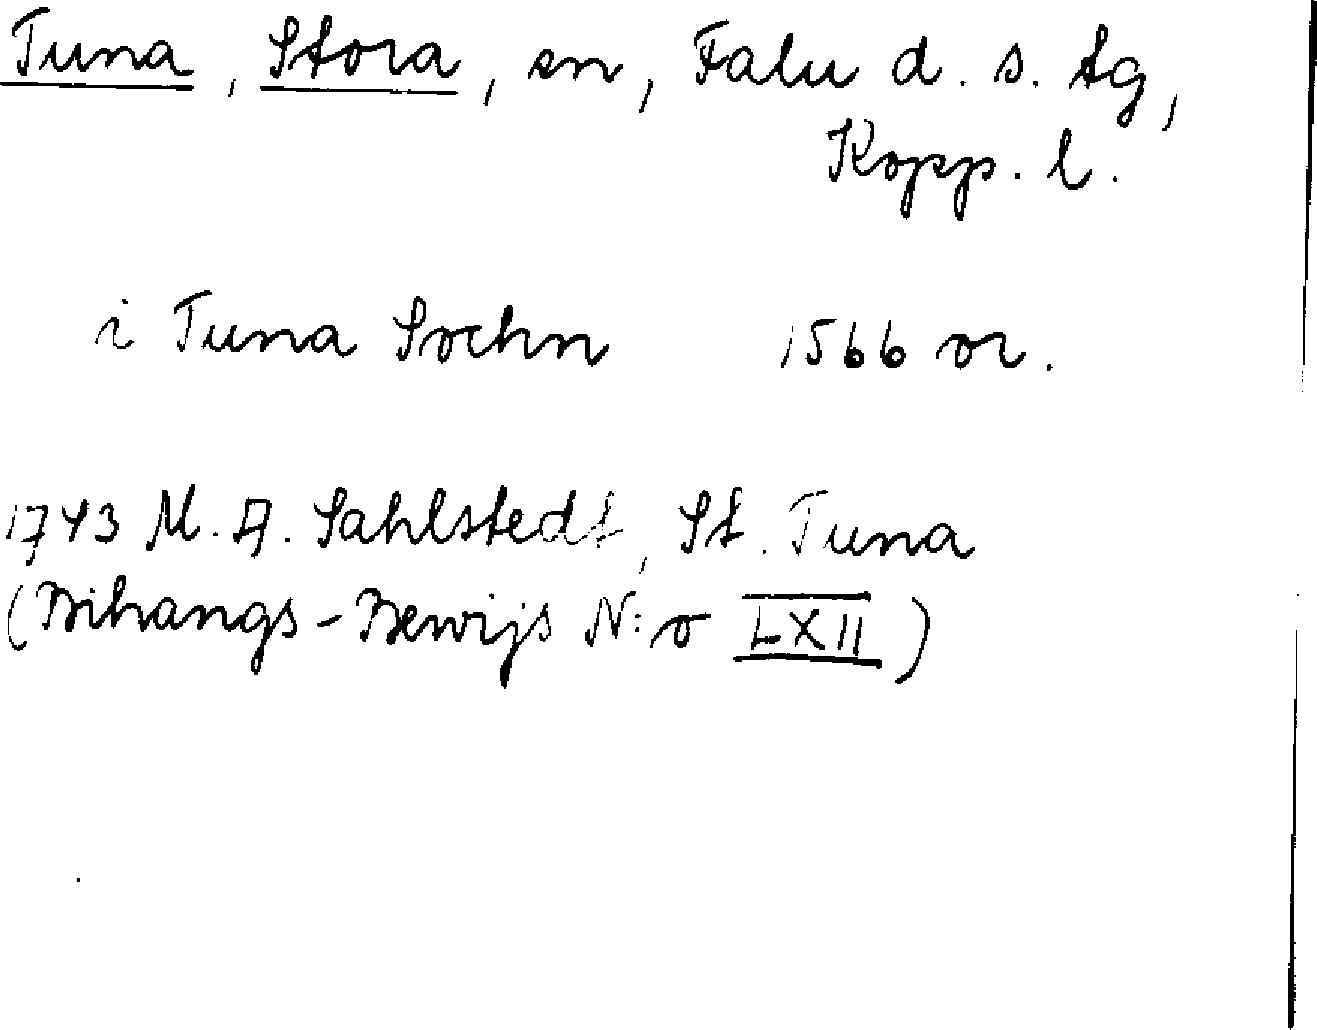 Tuna, Stora, sn, Falu d. s. tg,
Kopp. l.
i Tuna Sochn 1566 or.
1743 M. A. Sahlstedt, St. Tuna
(Bihangs-Bewijs N:o LXII)